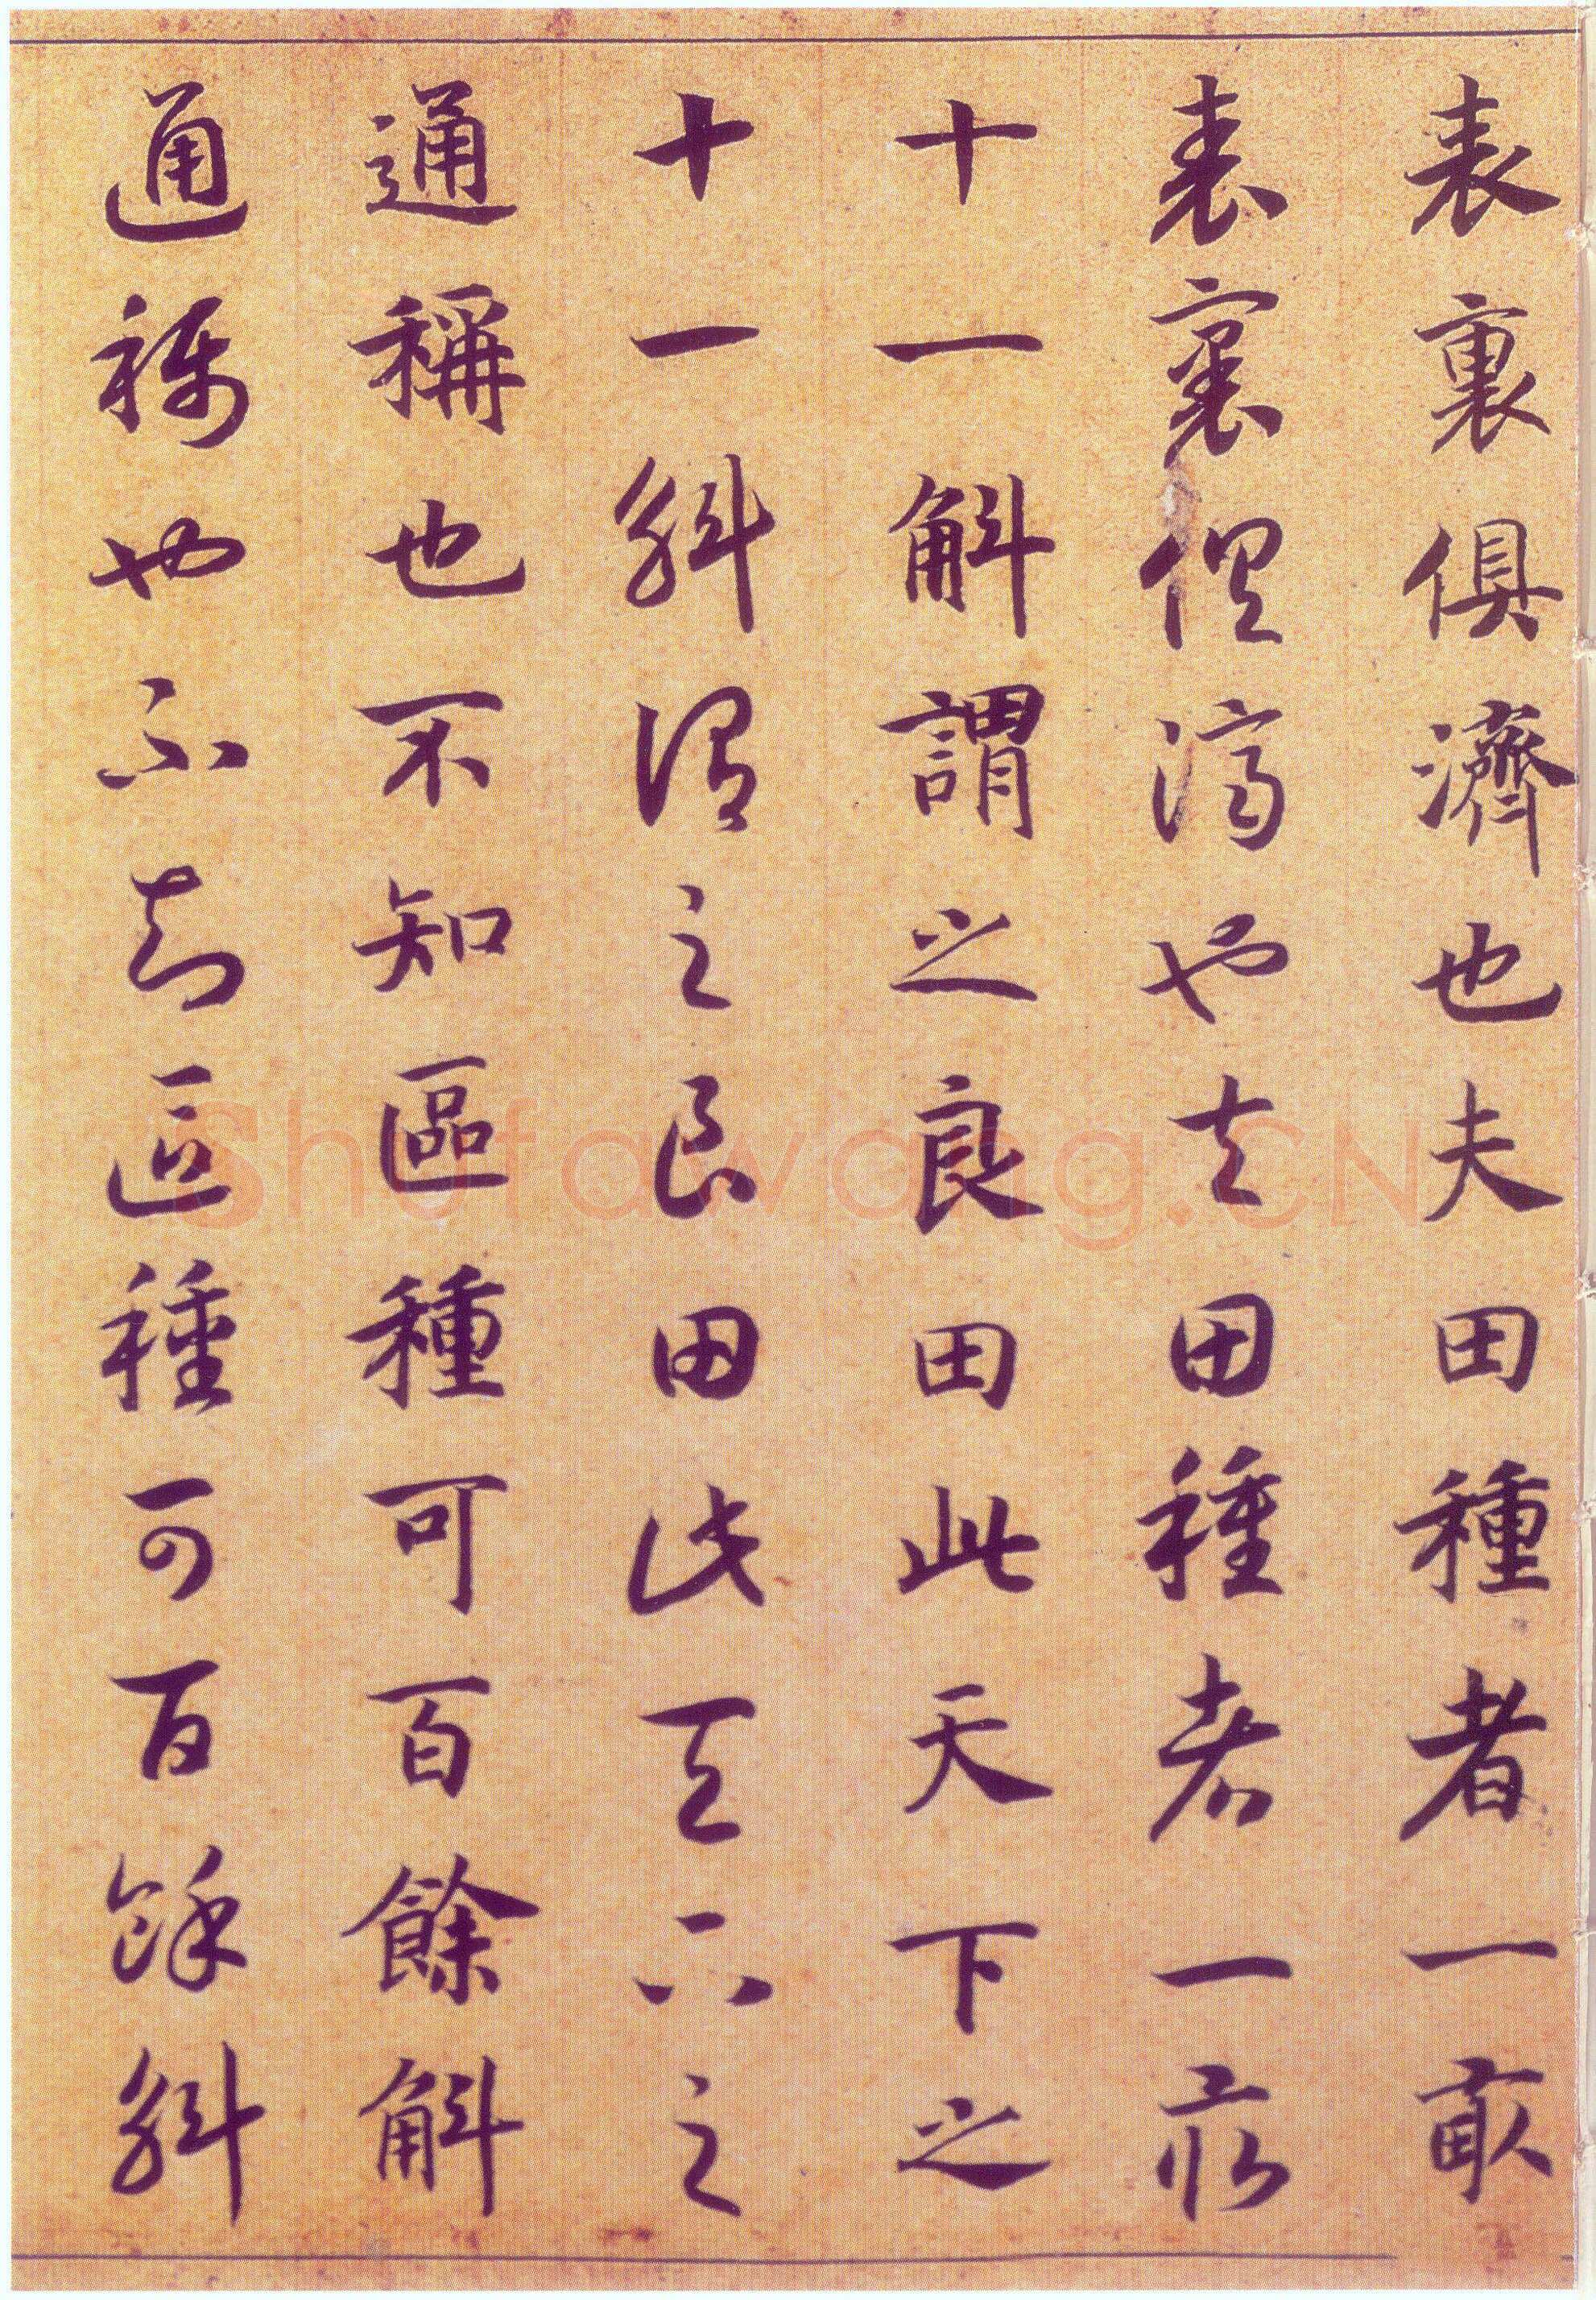 表裏俱濟也夫田種者一畝
表裏俱濟也夫田種者一畝
十一斛謂之良田此天下之
十一斛謂之良田此天下之
通稱也不知區種可百餘斛
通稱也不知區種可百餘斛
Shufawang.CN